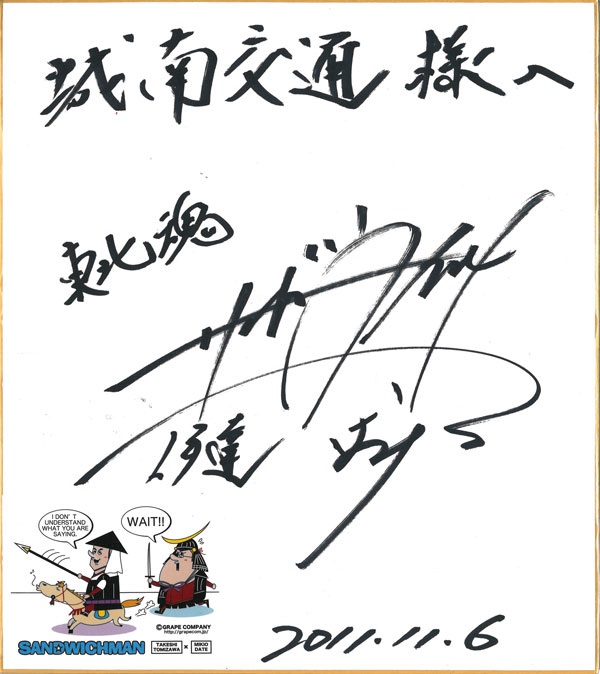 城南交通 様へ
東北魂
サンドウィッチマン
伊達
I DON'T
UNDERSTAND
WHAT YOU ARE
SAYING.
WAIT!!
©GRAPE COMPANY
http://grapecom.jp/
SANDWICHMAN
TAKESHI
TOMIZAWA
×
MIKIO
DATE
2011.11.6